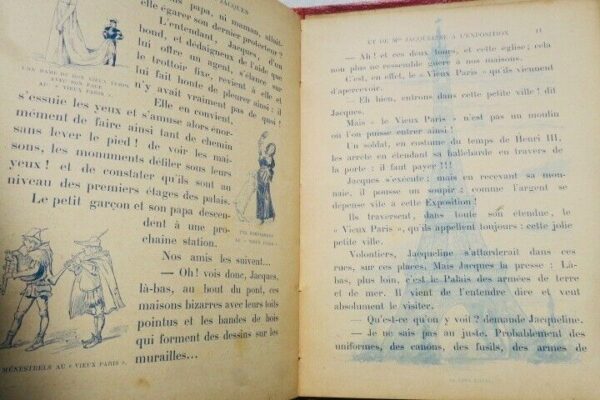 JACQUES
papa, ni maman, allait-
elle égarer son dernier protecteur?
L'entendant, Jacques, d'un
bond, et dédaigneux de l'aide que
lui offre un agent, s'élance sur
le trottoir fixe, revient à elle et
lui fait honte de pleurer ainsi : il
n'y avait vraiment pas de quoi!
Elle en convient,
s'essuie les yeux et s'amuse alors énor-
mément de faire ainsi tant de chemin
sans lever le pied! de voir les mai-
sons, les monuments défiler sous leurs
yeux! et de constater qu'ils sont au
niveau des premiers étages des palais.
Le petit garçon et son papa descen-
dent à une pro-
chaine station.
Nos amis les suivent...
— Oh! vois donc, Jacques,
là-bas, au bout du pont, ces
maisons bizarres avec leurs toits
pointus et les bandes de bois
qui forment des dessins sur les
murailles...
UNE DAME DU BON VIEUX TEMPS
AVEC SON PAGE
AU « VIEUX PARIS ».
AU « VIEUX PARIS »
MÉNESTRELS AU « VIEUX PARIS »
ET DE Mlle JACQUELINE A L'EXPOSITION 11
— Ah! et ces deux tours, et cette église; cela
nous plus ne ressemble guère à nos maisons.
C'est, en effet, le « Vieux Paris » qu'ils viennent
d'apercevoir.
— Eh bien, entrons dans cette petite ville! dit
Jacques.
Mais « le Vieux Paris » n'est pas un moulin
où l'on puisse entrer ainsi!
Un soldat, en costume du temps de Henri III,
les arrête en étendant sa hallebarde en travers de
la porte : il faut payer!!!
Jacques s'exécute; mais en recevant sa mon-
naie, il pousse un soupir : comme l'argent se
dépense vite à cette Exposition!
Ils traversent, dans toute son étendue, le
« Vieux Paris », qu'ils appellent toujours : cette jolie
petite ville.
Volontiers, Jacqueline s'attarderait dans ces
rues, sur ces places. Mais Jacques la presse : Là-
bas, plus loin, c'est le Palais des armées de terre
et de mer. Il vient de l'entendre dire et veut
absolument le visiter.
— Qu'est-ce qu'on y voit? demande Jacqueline.
— Je ne sais pas au juste. Probablement des
uniformes, des canons, des fusils, des armes de